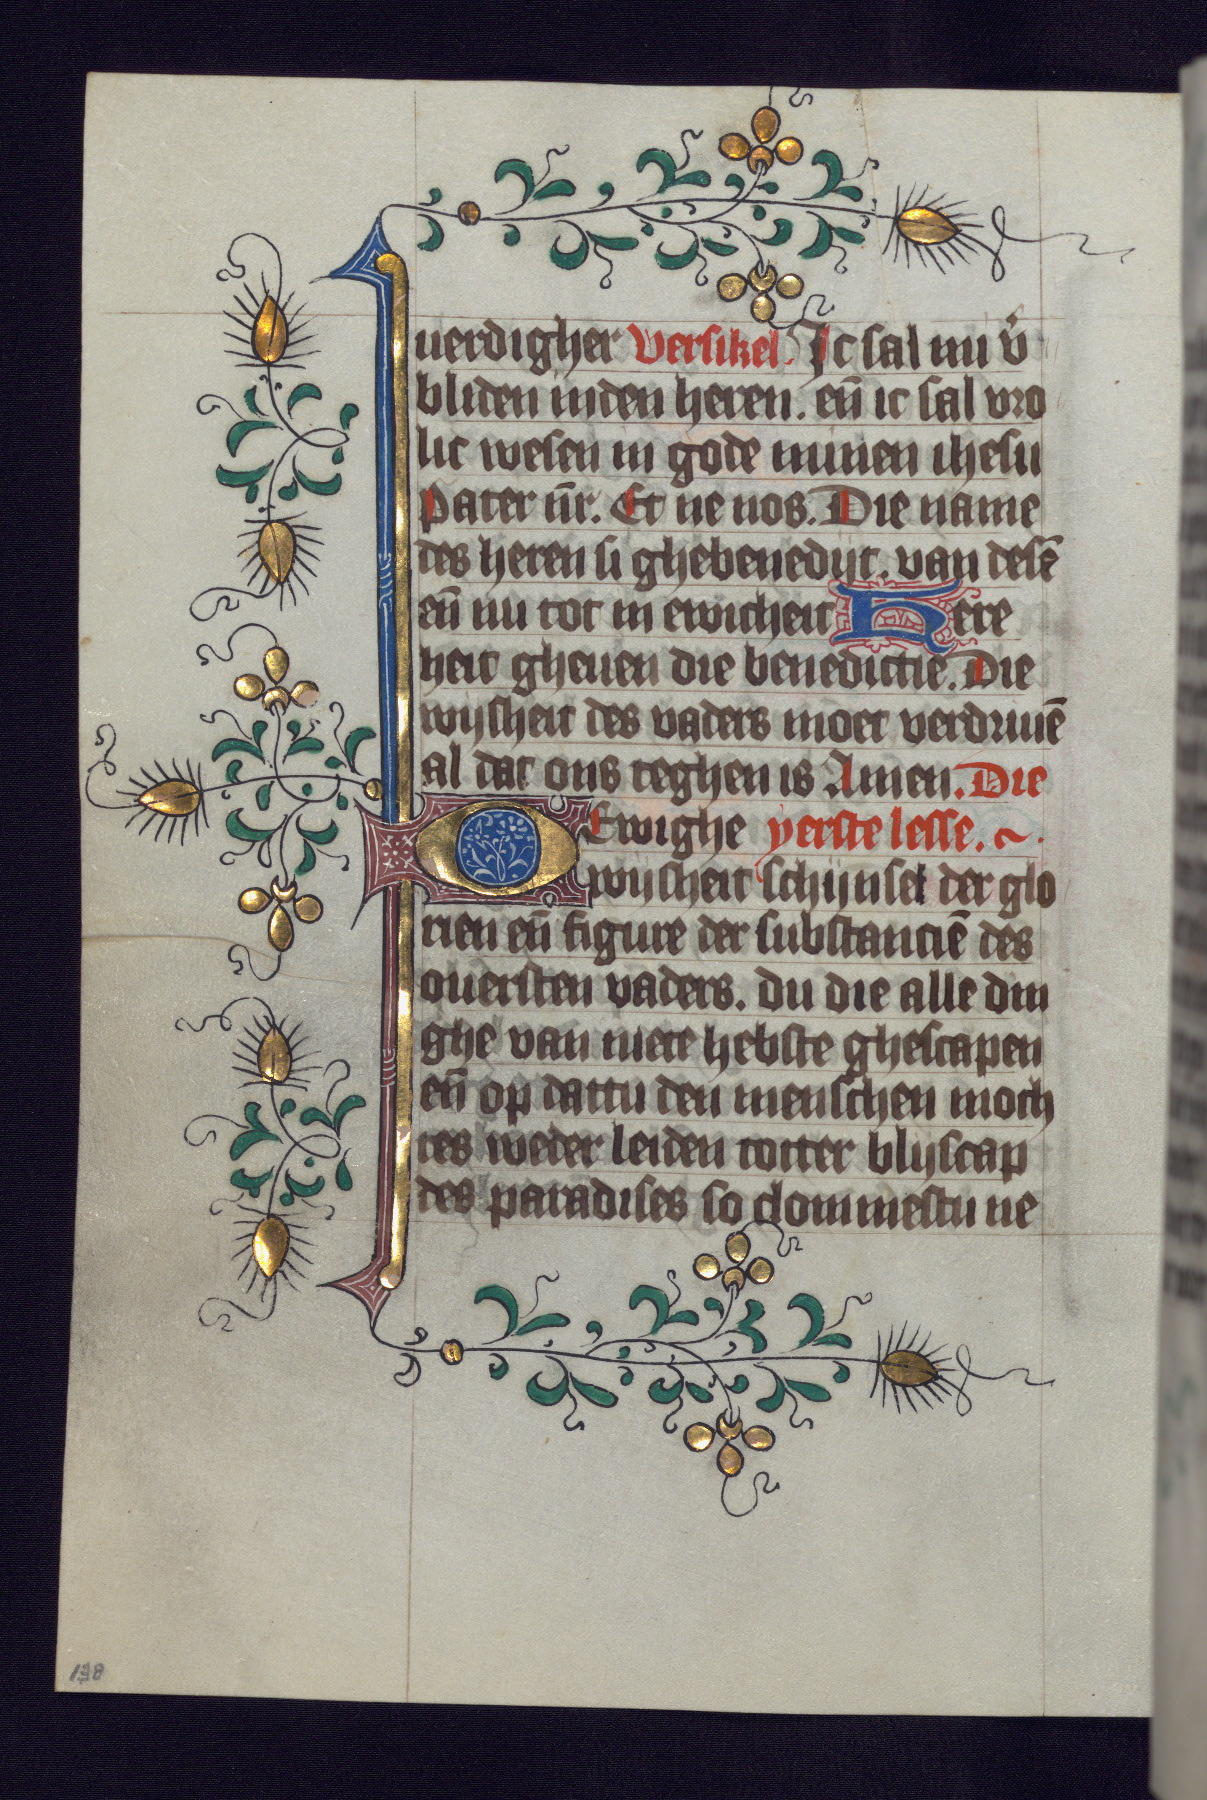 uerdigher Versikel. Ic sal mi v̄
bliden inden heren. en̄ ic sal vro
lic wesen in gode minen ihesu
Pater nr̄. Et ne nos. Die name
des heren si ghebenedijt. van desē
en̄ nu tot in ewicheit Here
heit gheuen die benedictie. Die
wijsheit des vaders moet verdriuē
al dat ons teghen is Amen. Die
O Ewighe yerste lesse.
wijsheit schijnsel der glo
rien en̄ figure der substanciē des
ouersten vaders. du die alle din
ghe van niete hebste ghescapen
en̄ op dattu den menschen moch
tes weder leiden totter blijscap
des paradises so clommestu ne
138